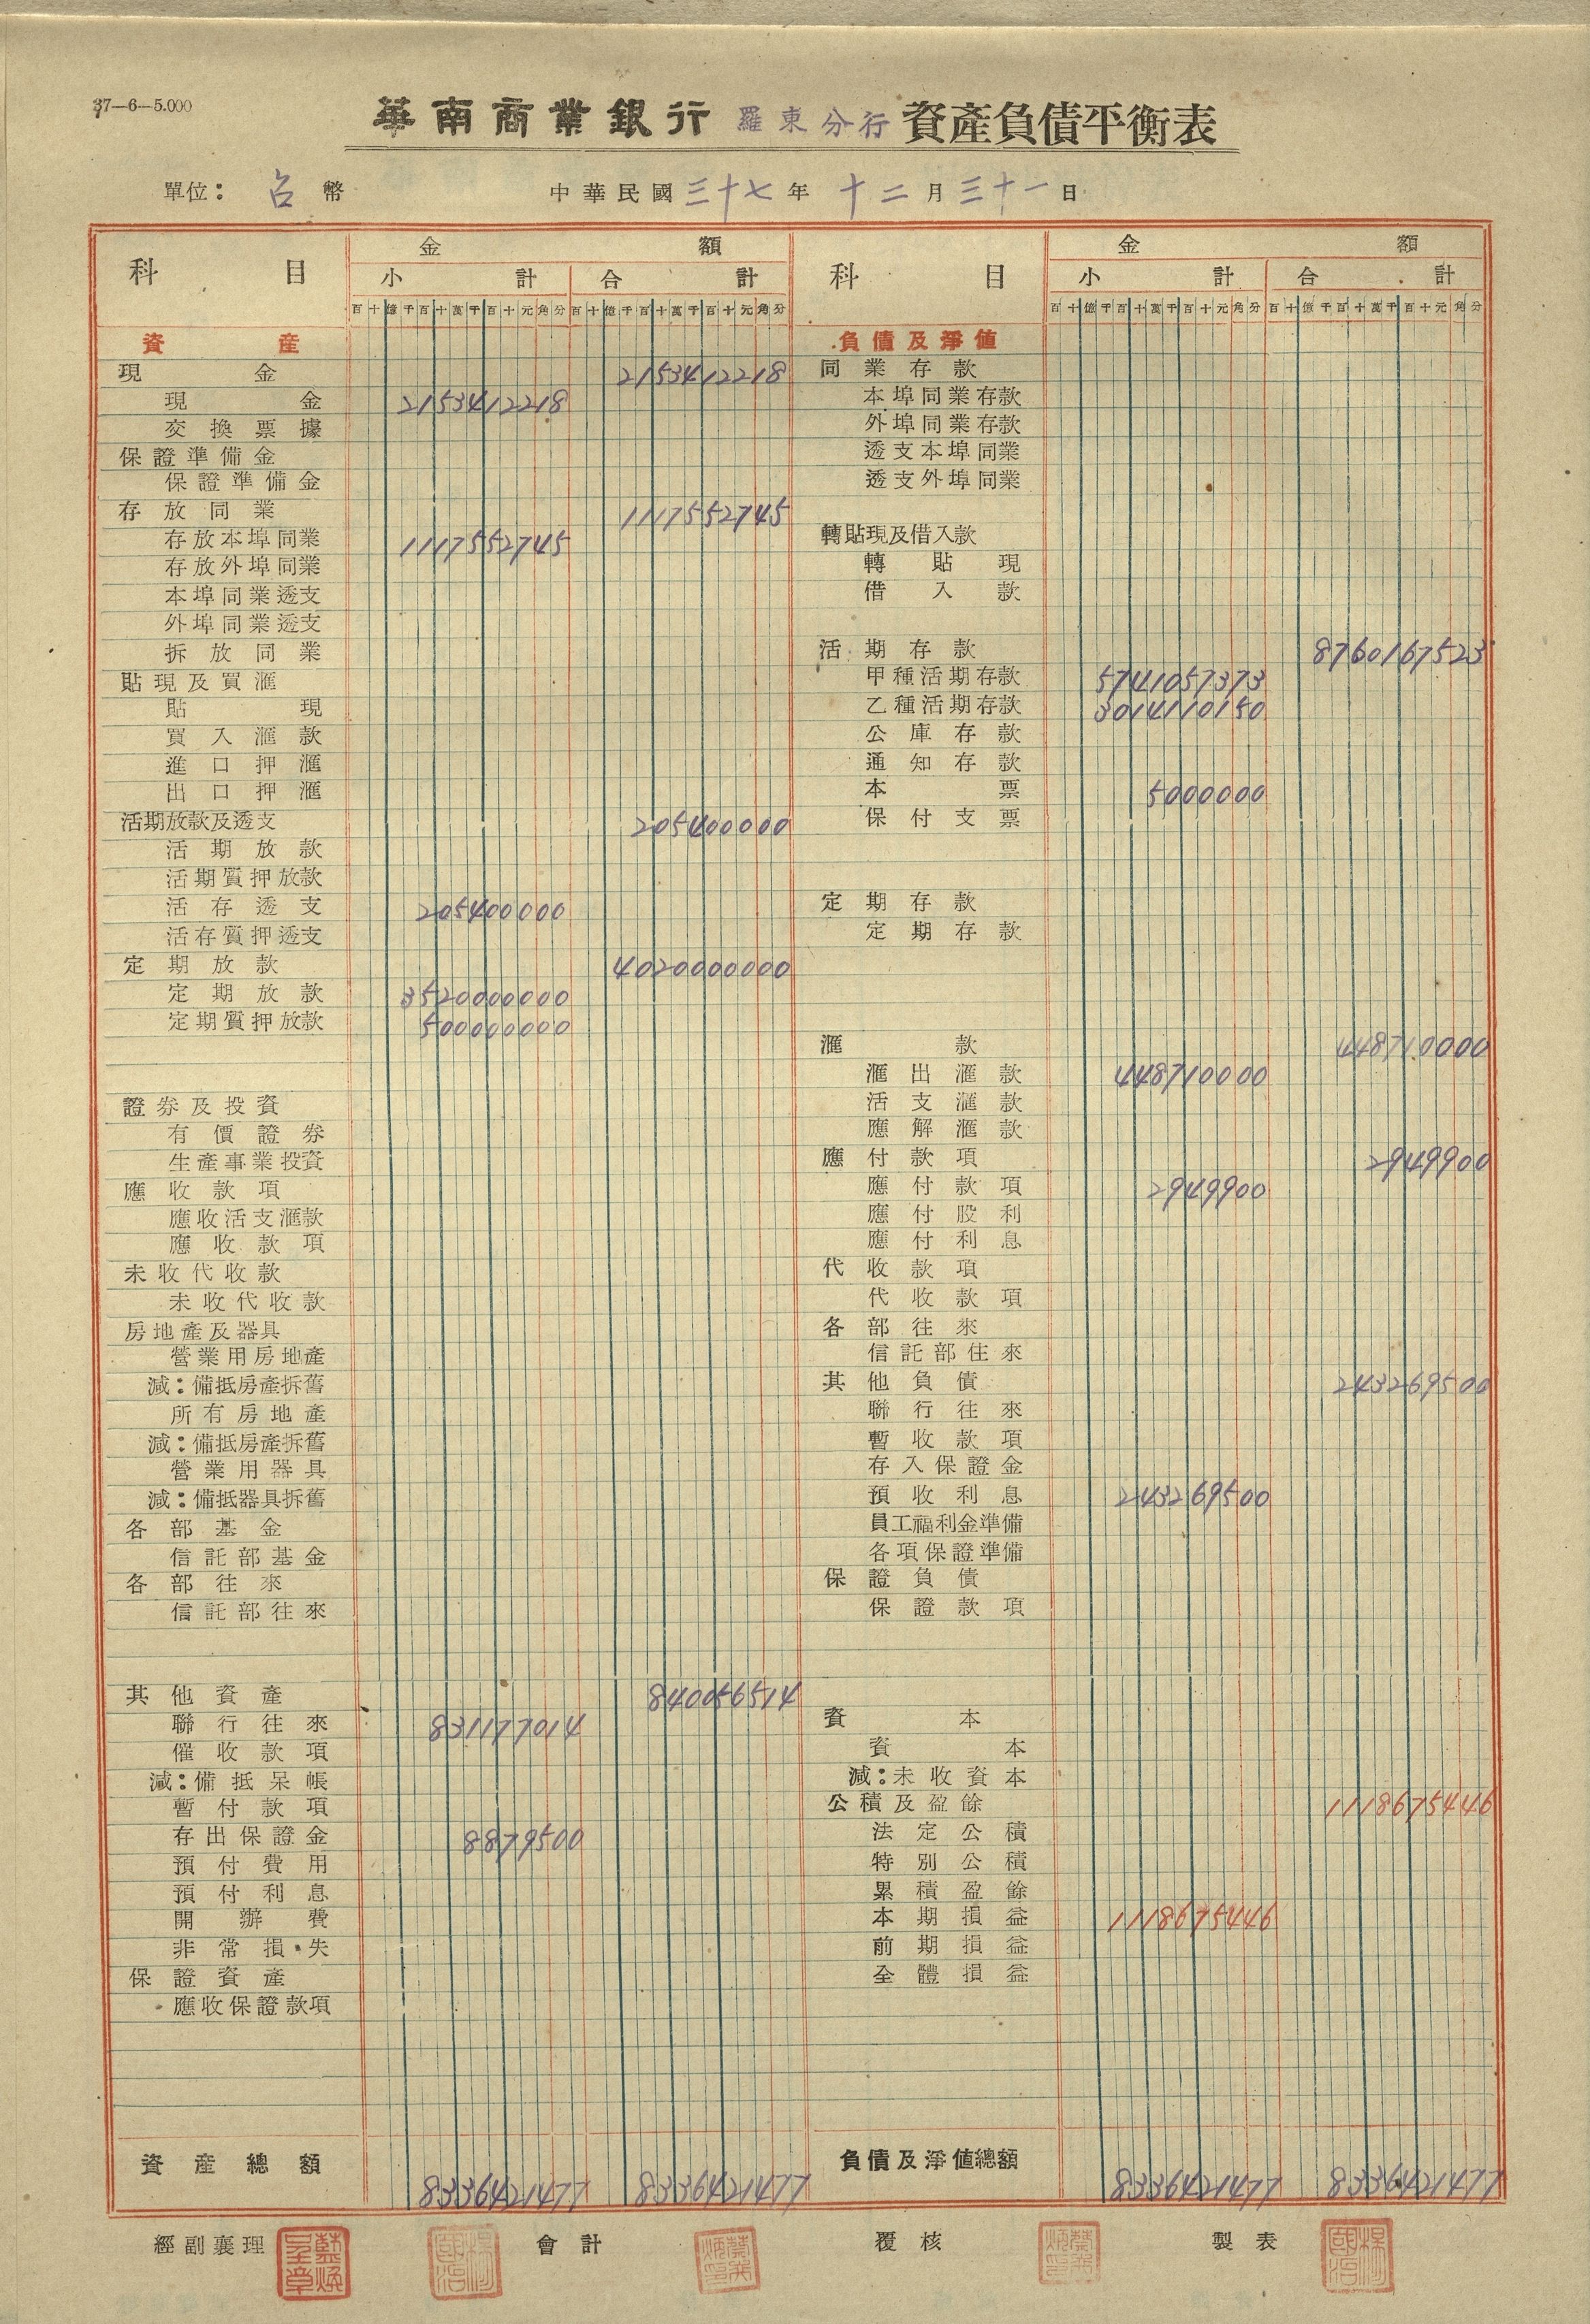 37—6—5.000
華南商業銀行 羅東分行 資產負債平衡表
單位：台幣
中華民國三十七年十二月三十一日
科目 金額
小計 合計
百十億千百十萬千百十元角分 百十億千百十萬千百十元角分
資產
現金 2153412218
現金 2153412218
交換票據
保證準備金
保證準備金
存放同業 1117552745
存放本埠同業 1117552745
存放外埠同業
本埠同業透支
外埠同業透支
拆放同業
貼現及買滙
貼現
買入滙款
進口押滙
出口押滙
活期放款及透支 205400000
活期放款
活期質押放款
活存透支 205400000
活存質押透支
定期放款 4020000000
定期放款 3520000000
定期質押放款 500000000
證券及投資
有價證券
生產事業投資
應收款項
應收活支滙款
應收款項
未收代收款
未收代收款
房地產及器具
營業用房地產
減：備抵房產拆舊
所有房地產
減：備抵房產拆舊
營業用器具
減：備抵器具拆舊
各部基金
信託部基金
各部往來
信託部往來
其他資產 840056514
聯行往來 831177014
催收款項
減：備抵呆帳
暫付款項
存出保證金 8879500
預付費用
預付利息
開辦費
非常損失
保證資產
應收保證款項
資產總額 8336421477 8336421477
科目 金額
小計 合計
百十億千百十萬千百十元角分 百十億千百十萬千百十元角分
負債及淨值
同業存款
本埠同業存款
外埠同業存款
透支本埠同業
透支外埠同業
轉貼現及借入款
轉貼現
借入款
活期存款 8760167523
甲種活期存款 5741057373
乙種活期存款 3014110150
公庫存款
通知存款
本票 5000000
保付支票
定期存款
定期存款
滙款 448710000
滙出滙款 448710000
活支滙款
應解滙款
應付款項 2949900
應付款項 2949900
應付股利
應付利息
代收款項
代收款項
各部往來
信託部往來
其他負債 243269500
聯行往來
暫收款項
存入保證金
預收利息 243269500
員工福利金準備
各項保證準備
保證負債
保證款項
資本
資本
減：未收資本
公積及盈餘 1118675446
法定公積
特別公積
累積盈餘
本期損益 1118675446
前期損益
全體損益
負債及淨值總額 8336421477 8336421477
經副襄理 會計 覆核 製表